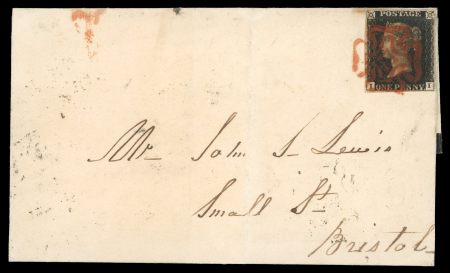 POSTAGE
I ONE PENNY I
Mr John S Lewis
Small St
Bristol